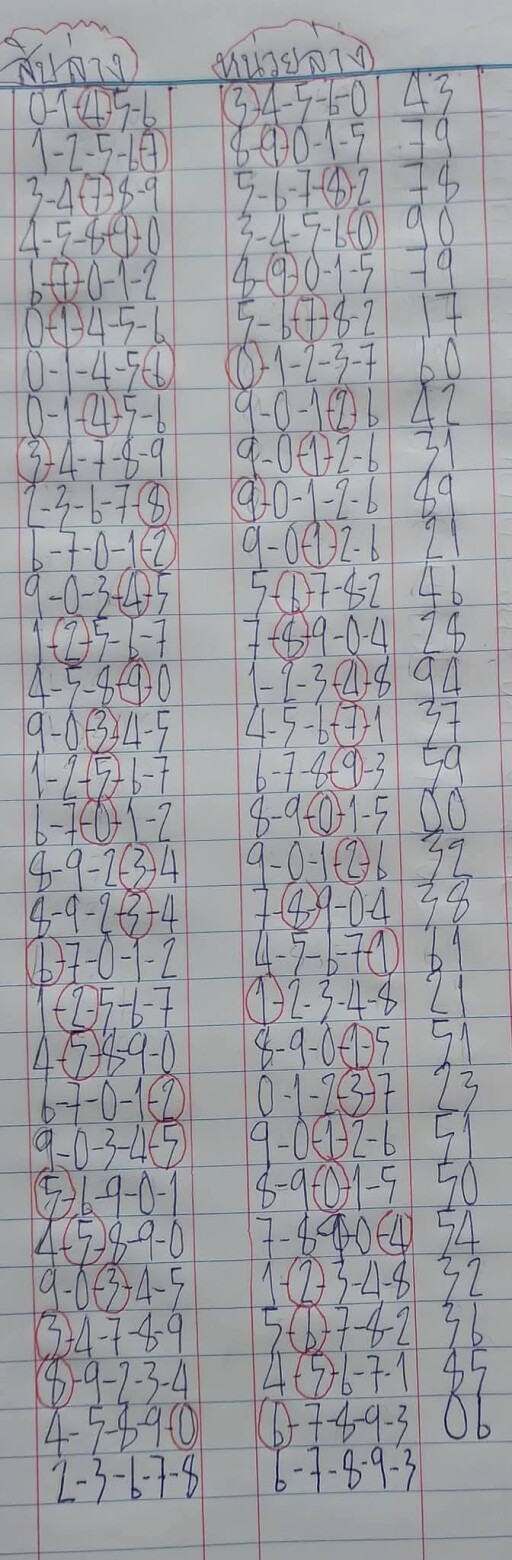 สิบล่าง หน่วยล่าง
0-1-4-5-6 3-4-5-6-0 43
1-2-5-6-7 8-9-0-1-5 79
3-4-7-8-9 5-6-7-8-2 78
4-5-8-9-0 3-4-5-6-0 90
6-7-0-1-2 8-9-0-1-5 79
0-1-4-5-6 5-6-7-8-2 17
0-1-4-5-6 0-1-2-3-7 60
0-1-4-5-6 9-0-1-2-6 42
3-4-7-8-9 9-0-1-2-6 31
2-3-6-7-8 9-0-1-2-6 89
6-7-0-1-2 9-0-1-2-6 21
9-0-3-4-5 5-6-7-8-2 46
1-2-5-6-7 7-8-9-0-4 28
4-5-8-9-0 1-2-3-4-8 94
9-0-3-4-5 4-5-6-7-1 37
1-2-5-6-7 6-7-8-9-3 59
6-7-0-1-2 8-9-0-1-5 00
8-9-2-3-4 9-0-1-2-6 32
8-9-2-3-4 7-8-9-0-4 38
6-7-0-1-2 4-5-6-7-1 61
1-2-5-6-7 1-2-3-4-8 21
4-5-8-9-0 8-9-0-1-5 51
6-7-0-1-2 0-1-2-3-7 23
9-0-3-4-5 9-0-1-2-6 51
5-6-9-0-1 8-9-0-1-5 50
4-5-8-9-0 7-8-9-0-4 54
9-0-3-4-5 1-2-3-4-8 32
3-4-7-8-9 5-6-7-8-2 36
8-9-2-3-4 4-5-6-7-1 85
4-5-8-9-0 6-7-8-9-3 06
2-3-6-7-8 6-7-8-9-3